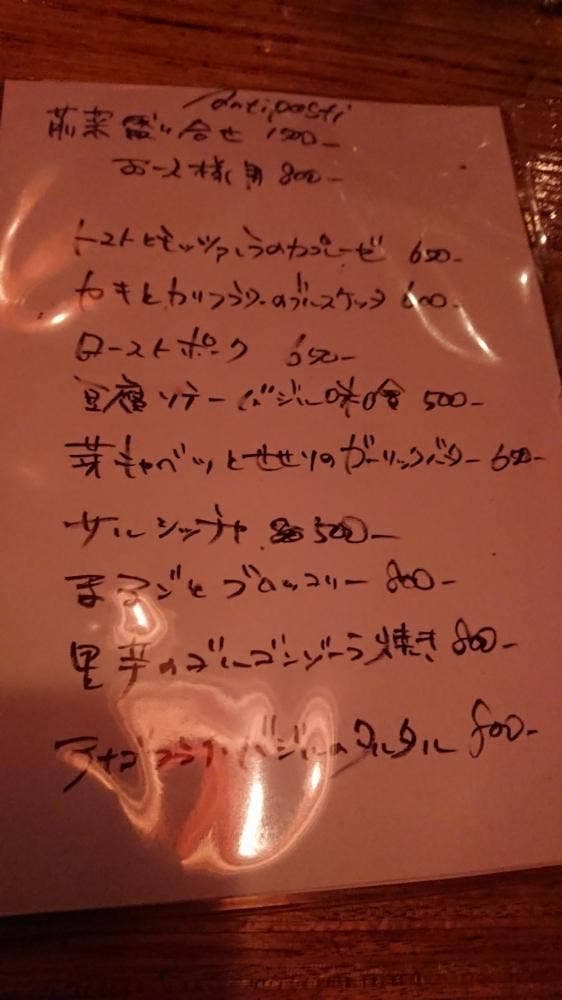 Antipasti
前菜盛り合せ 1500-
お一人様用 800-
トマトとモッツァレラのカプレーゼ 650-
カキとカリフラワーのブルスケッタ 600-
ローストポーク 650-
豆腐ソテーバジル味噌 500-
芽キャベツとせせりのガーリックバター 650-
サルシッチャ 500-
ブロッコリー 800-
里芋のゴルゴンゾーラ焼き 800-
バジルのタルタル 800-